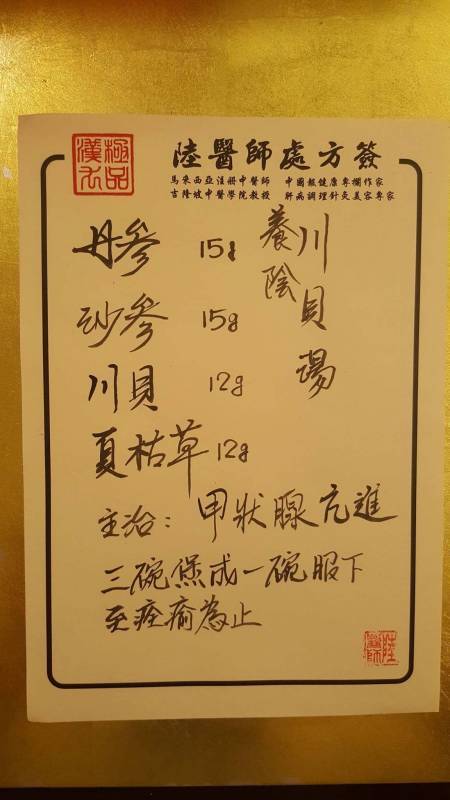 極品
漢方
陸醫師處方簽
馬來西亞注册中醫師 中國報健康專欄作家
吉隆坡中醫學院教授 肝病調理針灸美容專家
養陰
川貝湯
丹參 15g
沙參 15g
川貝 12g
夏枯草 12g
主治：甲狀腺亢進
三碗煲成一碗服下
至痊癒為止
陸醫師